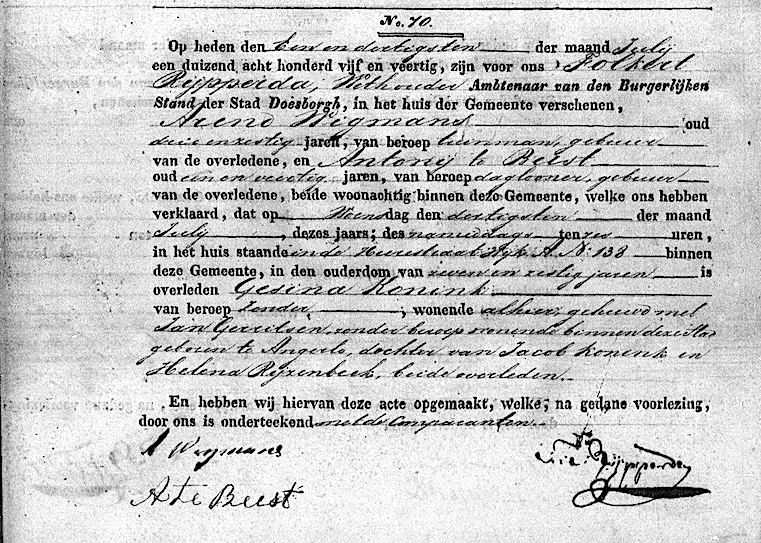 No. 70.
Op heden den Een en dertigsten der maand Julij
een duizend acht honderd vijf en veertig, zijn voor ons Folkert
Rijpperda, Wethouder Ambtenaar van den Burgerlijken
Stand der Stad Doesborgh, in het huis der Gemeente verschenen,
Arend Wigmans oud
drie en zestig jaren, van beroep tuinman, gebuur
van de overledene, en Antonij te Beest
oud een en veertig jaren, van beroep daglooner, gebuur
van de overledene, beide woonachtig binnen deze Gemeente, welke ons hebben
verklaard, dat op Woensdag den dertigsten der maand
Julij, dezes jaars; des namiddags ten zes uren,
in het huis staande in de Heerestraat Wijk A No 138 binnen
deze Gemeente, in den ouderdom van zeven en zestig jaren is
overleden Gesina Konink
van beroep Zonder, wonende alhier, gehuwd met
Jan Gerritsen, zonder beroep wonende binnen deze Stad
geboren te Angerlo, dochter van Jacob Konink en
Helena Rijzenbeek, beide overleden.
En hebben wij hiervan deze acte opgemaakt, welke, na gedane voorlezing,
door ons is onderteekend met de Comparanten.
A Wegmans
A te Beest
Rijpperda